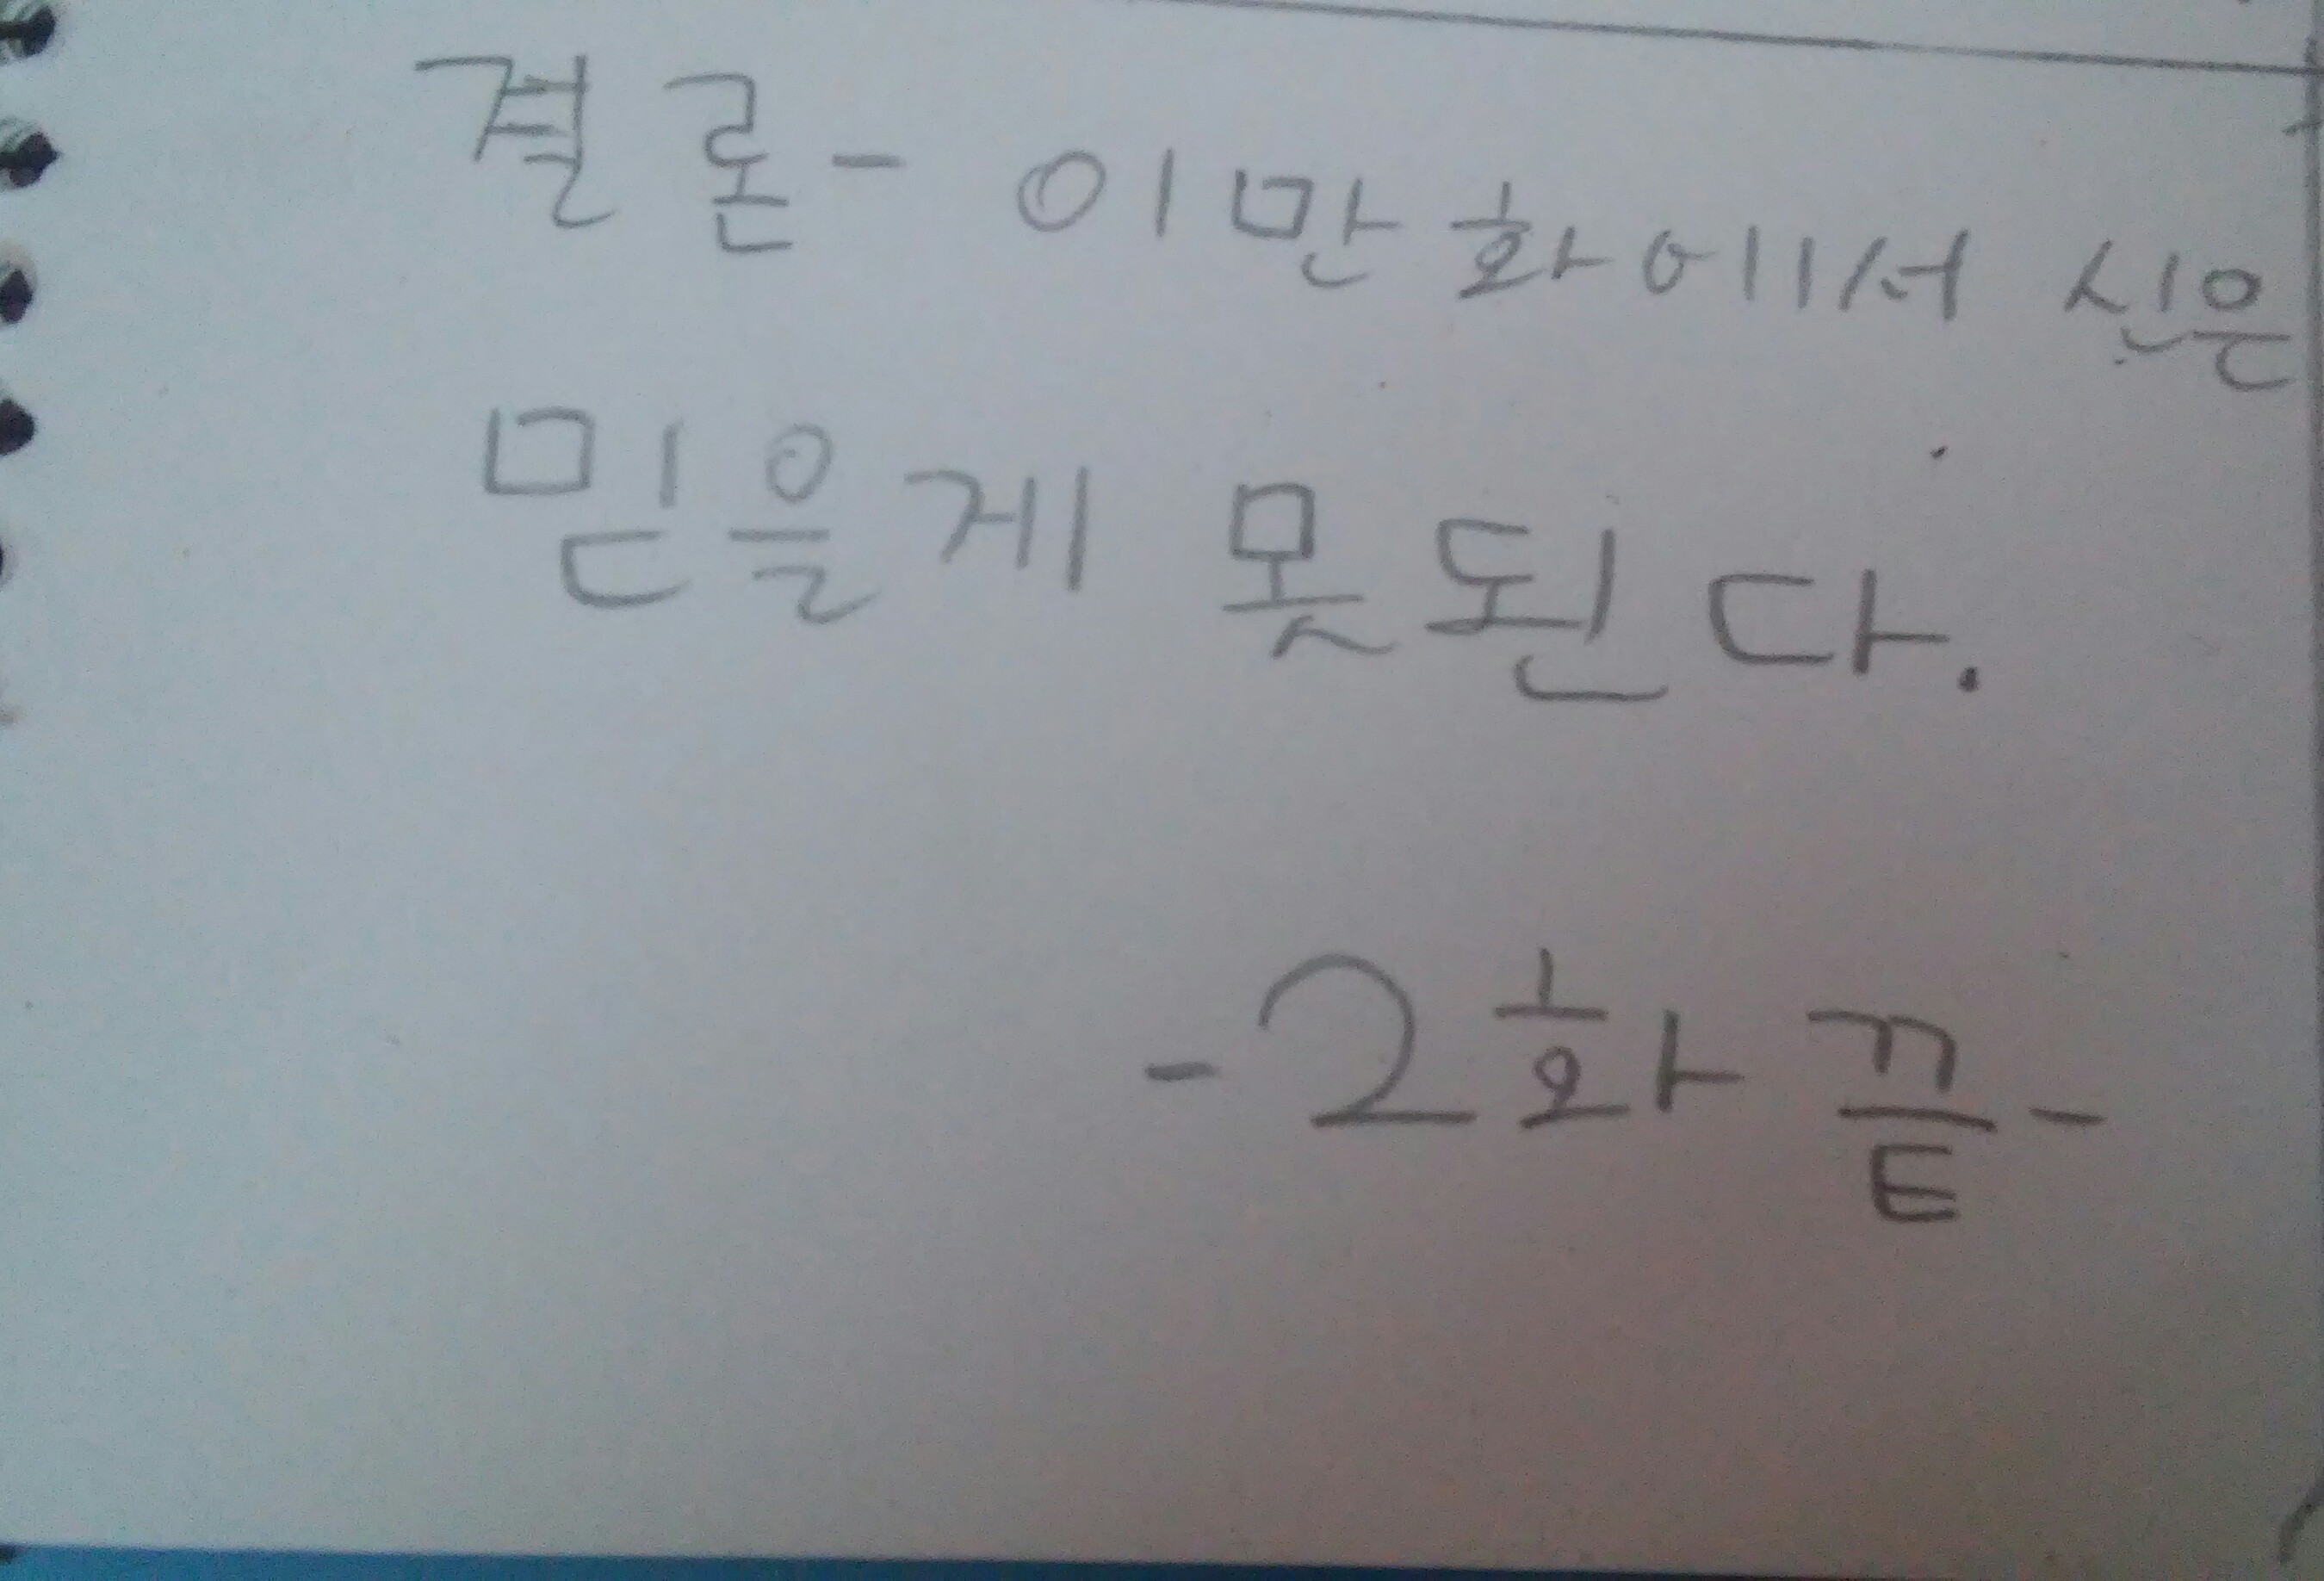 결론- 이만화에서 신은
믿을게 못된다.
-2화 끝-